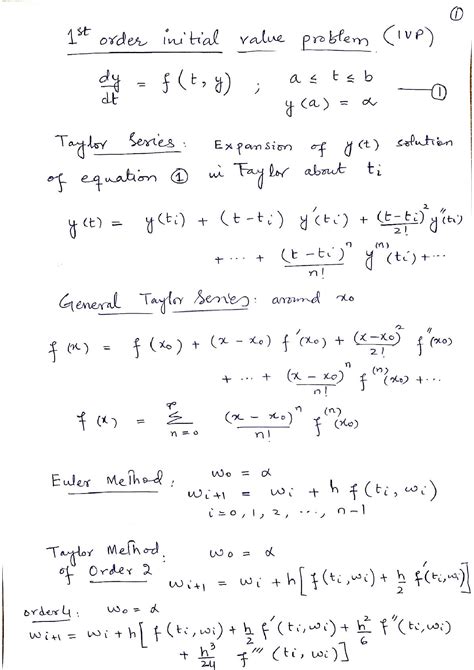 ①
1st order initial value problem (IVP)
dy/dt = f(t, y) ; a ≤ t ≤ b
y(a) = α —①
Taylor Series: Expansion of y(t) solution
of equation ① in Taylor about ti
y(t) = y(ti) + (t-ti) y'(ti) + (t-ti)²/2! y''(ti)
+ ··· + (t-ti)ⁿ/n! y⁽ⁿ⁾(ti) + ···
General Taylor Series: around x0
f(x) = f(x0) + (x-x0) f'(x0) + (x-x0)²/2! f''(x0)
+ ··· + (x-x0)ⁿ/n! f⁽ⁿ⁾(x0) + ···
f(x) = ∞Σn=0 (x-x0)ⁿ/n! f⁽ⁿ⁾(x0)
Euler Method: w0 = α
wi+1 = wi + h f(ti, wi)
i = 0, 1, 2, ···, n-1
Taylor Method: w0 = α
of Order 2 wi+1 = wi + h[f(ti, wi) + h/2 f'(ti, wi)]
order 4: w0 = α
wi+1 = wi + h[f(ti, wi) + h/2 f'(ti, wi) + h²/6 f''(ti, wi)
+ h³/24 f'''(ti, wi)]